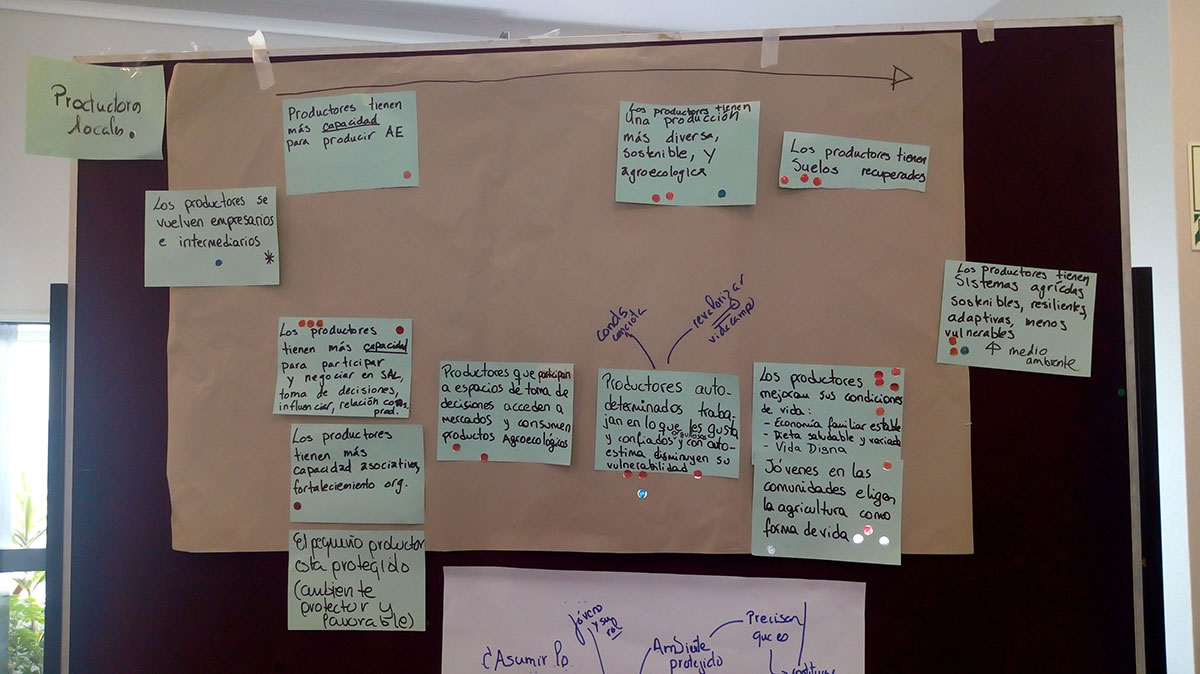 Productores
locales.
Productores tienen
más capacidad
para producir AE
Los productores tienen
Una producción
más diversa,
sostenible, y
agroecologica
Los productores tienen
Suelos recuperados
Los productores se
vuelven empresarios
e intermediarios
*
Los productores tienen
Sistemas agrícolas
sostenibles, resilientes,
adaptivas, menos
vulnerables
medio
ambiente
revalorizar
vida campo
Los productores
tienen más capacidad
para participar
y negociar en SAL,
toma de decisiones,
influenciar, relación
prod.
Productores que participan
a espacios de toma de
decisiones acceden a
mercados y consumen
productos Agroecológicos
Productores auto-
determinados traba-
jan en lo que les gusta
orgullosos
y confiados y con auto-
estima disminuyen su
vulnerabilidad
Los productores
mejoran sus condiciones
de vida:
- Economía familiar estable
- Dieta saludable y variada
- Vida Digna
Jóvenes en las
comunidades eligen
la agricultura como
forma de vida
Los productores
tienen más
capacidad asociativa,
fortaleciemiento org.
El pequeño productor
esta protegido
(ambiente
protector y
favorable)
jóvenes
y su rol
¿Asumir lo
Ambiente
protegido
Precisar
que es